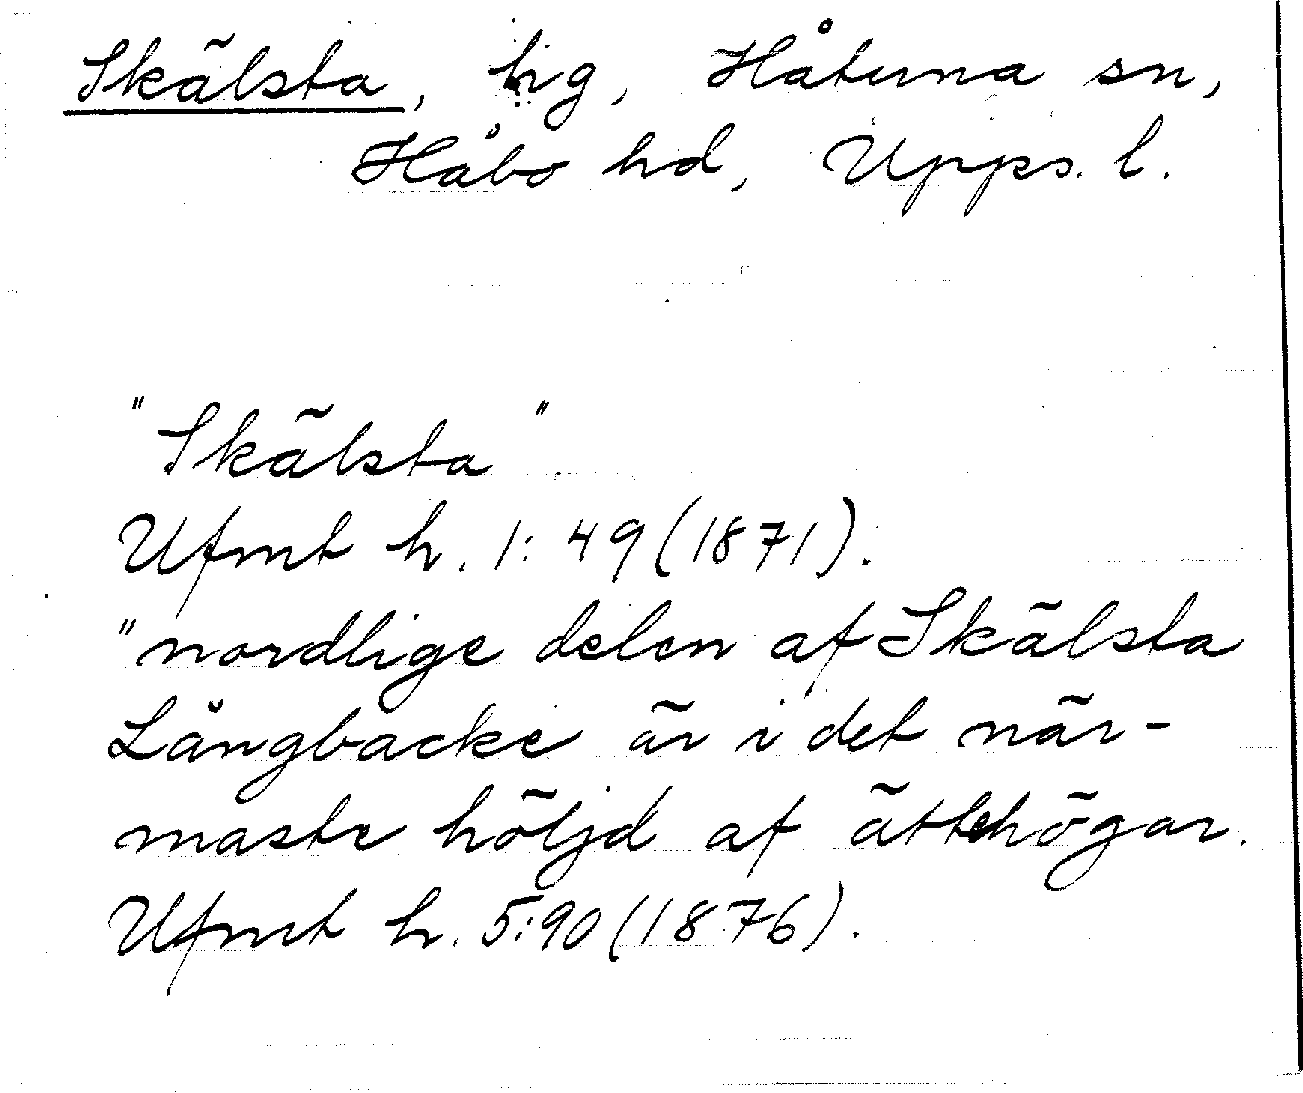 Skälsta, hg, Håtuna sn,
Håbo hd, Upps. l.
"Skälsta"
Ufmt h. 1:49 (1871).
"nordlige delen af Skälsta
Långbacke är i det när-
maste höljd af ättehögar.
Ufmt h. 5:90 (1876).